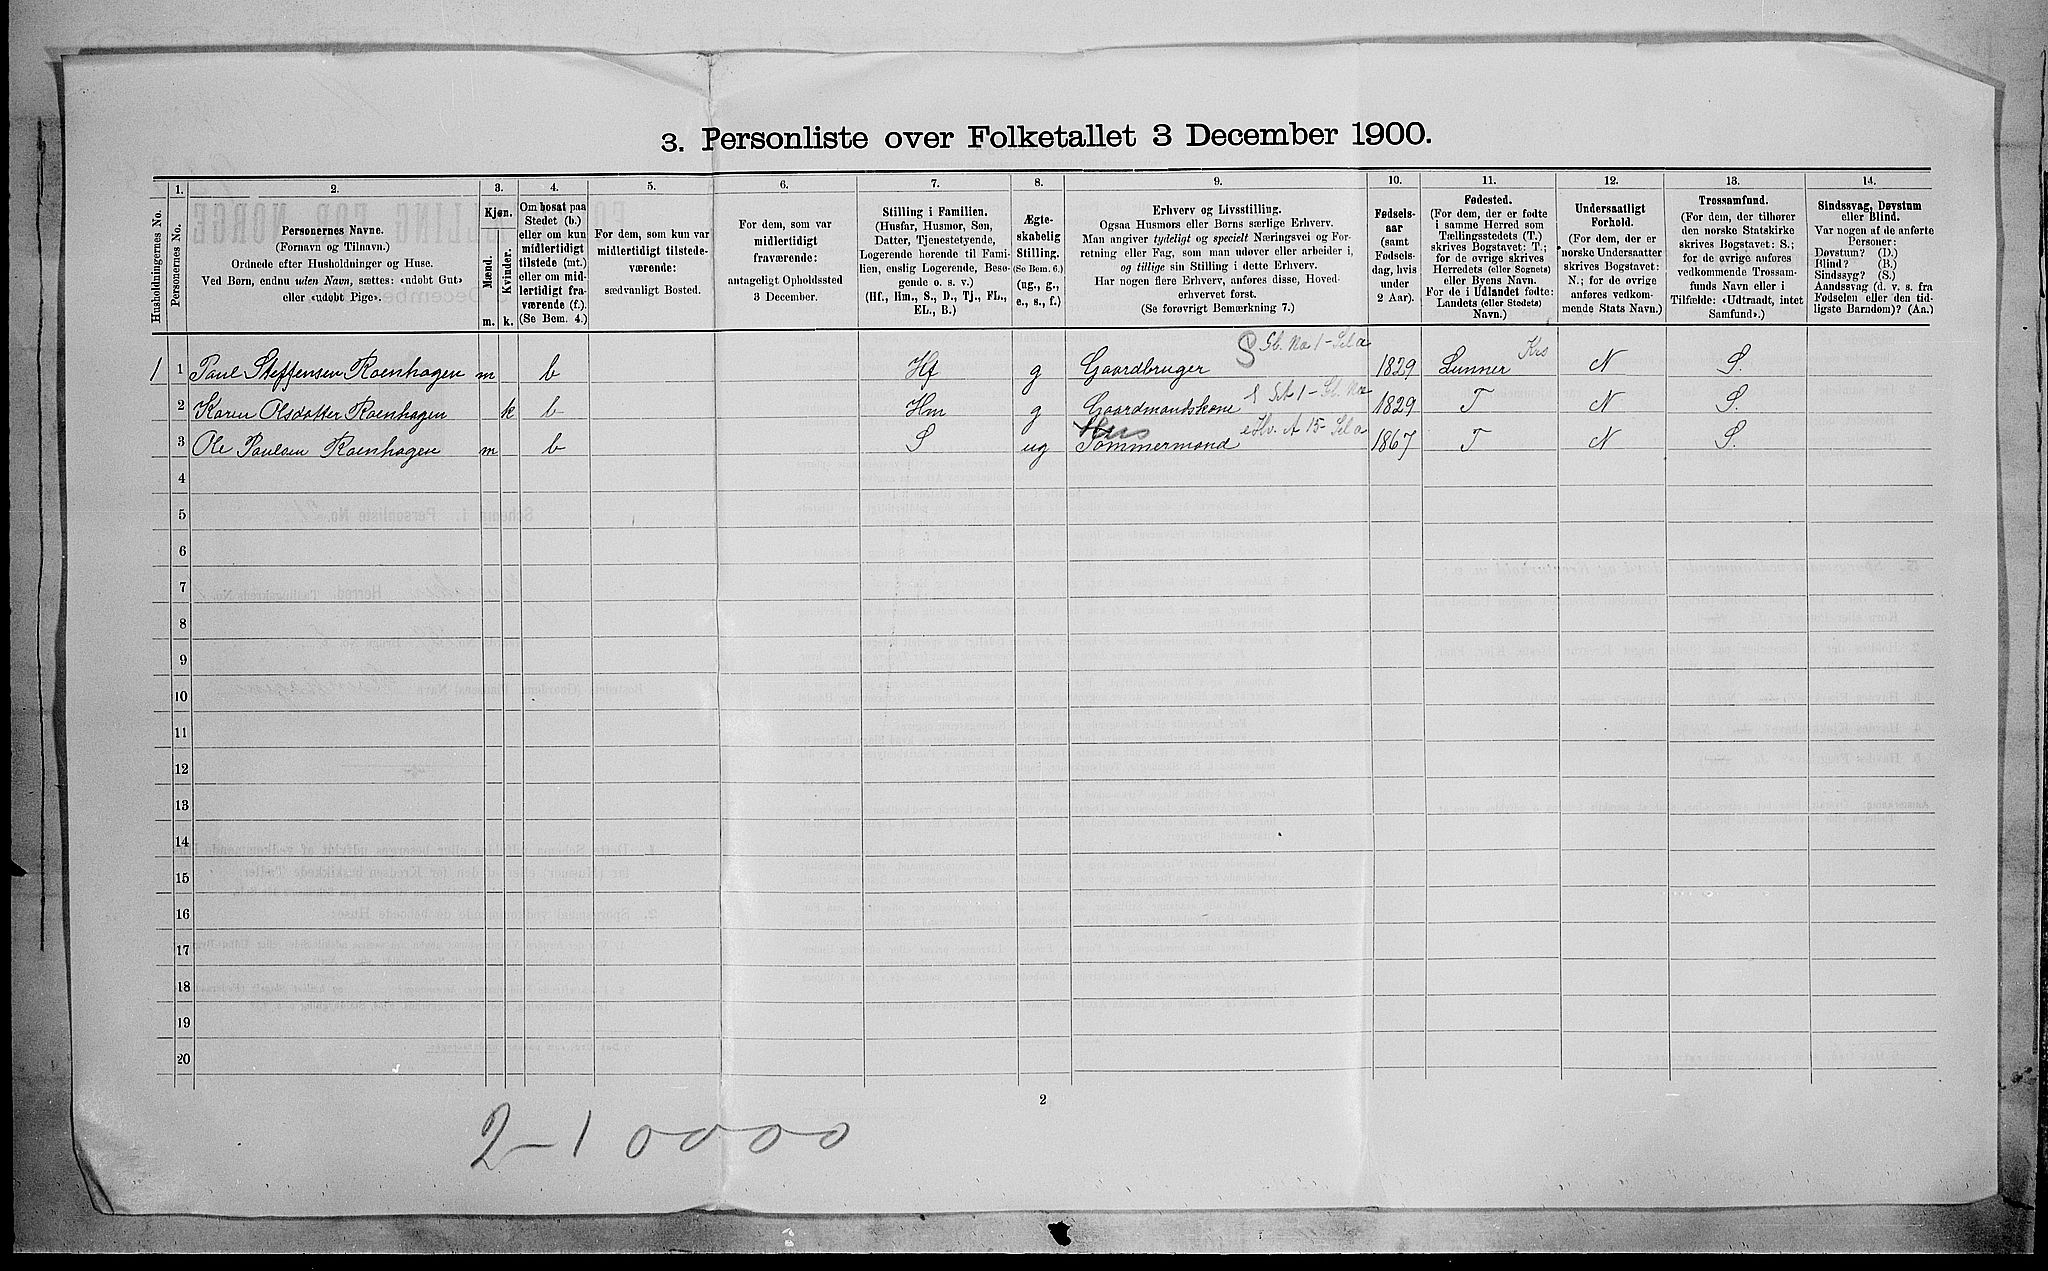 3. Personliste over Folketallet 3 December 1900.
Husholdningernes No.
1.
Personernes No.
2.
Personernes Navne.
(Fornavn og Tilnavn.)
Ordnede efter Husholdninger og Huse.
Ved Børn, endnu uden Navn, sættes: «udøbt Gut»
eller «udøbt Pige».
3.
Kjøn.
Mænd.
Kvinder.
m. k.
4.
Om bosat paa
Stedet (b.)
eller om kun
midlertidigt
tilstede (mt.)
eller om mid-
lertidigt fra-
værende (f.).
(Se Bem. 4.)
5.
For dem, som kun var
midlertidigt tilstede-
værende:
sædvanligt Bosted.
6.
For dem, som var
midlertidigt
fraværende:
antageligt Opholdssted
3 December.
7.
Stilling i Familien.
(Husfar, Husmor, Søn,
Datter, Tjenestetyende,
Logerende hørende til Fami-
lien, enslig Logerende, Besø-
gende o. s. v.)
(Hf., Hm., S., D., Tj., FL.,
EL., B.)
8.
Ægte-
skabelig
Stilling.
(Se Bem. 6.)
(ug., g.,
e., s., f.)
9.
Erhverv og Livsstilling.
Ogsaa Husmors eller Børns særlige Erhverv.
Man angiver tydeligt og specielt Næringsvei og For-
retning eller Fag, som man udøver eller arbeider i,
og tillige sin Stilling i dette Erhverv.
Har nogen flere Erhverv, anføres disse, Hoved-
erhvervet først.
(Se forøvrigt Bemærkning 7.)
10.
Fødsels-
aar
(samt
Fødsels-
dag, hvis
under
2 Aar).
11.
Fødested.
(For dem, der er fødte
i samme Herred som
Tællingsstedets (T.)
skrives Bogstavet: T.;
for de øvrige skrives
Herredets (eller Sognets)
eller Byens Navn.
For de i Udlandet fødte:
Landets (eller Stedets)
Navn.)
12.
Undersaatligt
Forhold.
(For dem, der er
norske Undersaatter
skrives Bogstavet:
N.; for de øvrige
anføres vedkom-
mende Stats Navn.)
13.
Trossamfund.
(For dem, der tilhører
den norske Statskirke
skrives Bogstavet: S.;
for de øvrige anføres
vedkommende Trossam-
funds Navn eller i
Tilfælde: «Udtraadt, intet
Samfund».)
14.
Sindssvag, Døvstum
eller Blind.
Var nogen af de anførte
Personer:
Døvstum? (D.)
Blind? (B.)
Sindssyg? (S.)
Aandssvag (d. v. s. fra
Fødselen eller den tid-
ligste Barndom)? (Aa.)
1 1 Paul Steffensen Roenhagen m b Hf g Gaardbruger 1829 Lunner Krs N S.
2 Karen Olsdatter Roenhagen k b Hm g Gaardmandskone 1829 T N S.
3 Ole Paulsen Roenhagen m b S ug Tømmermand 1867 T N S.
4
5
6
7
8
9
10
11
12
13
14
15
16
17
18
19
20
2
2-1 0000